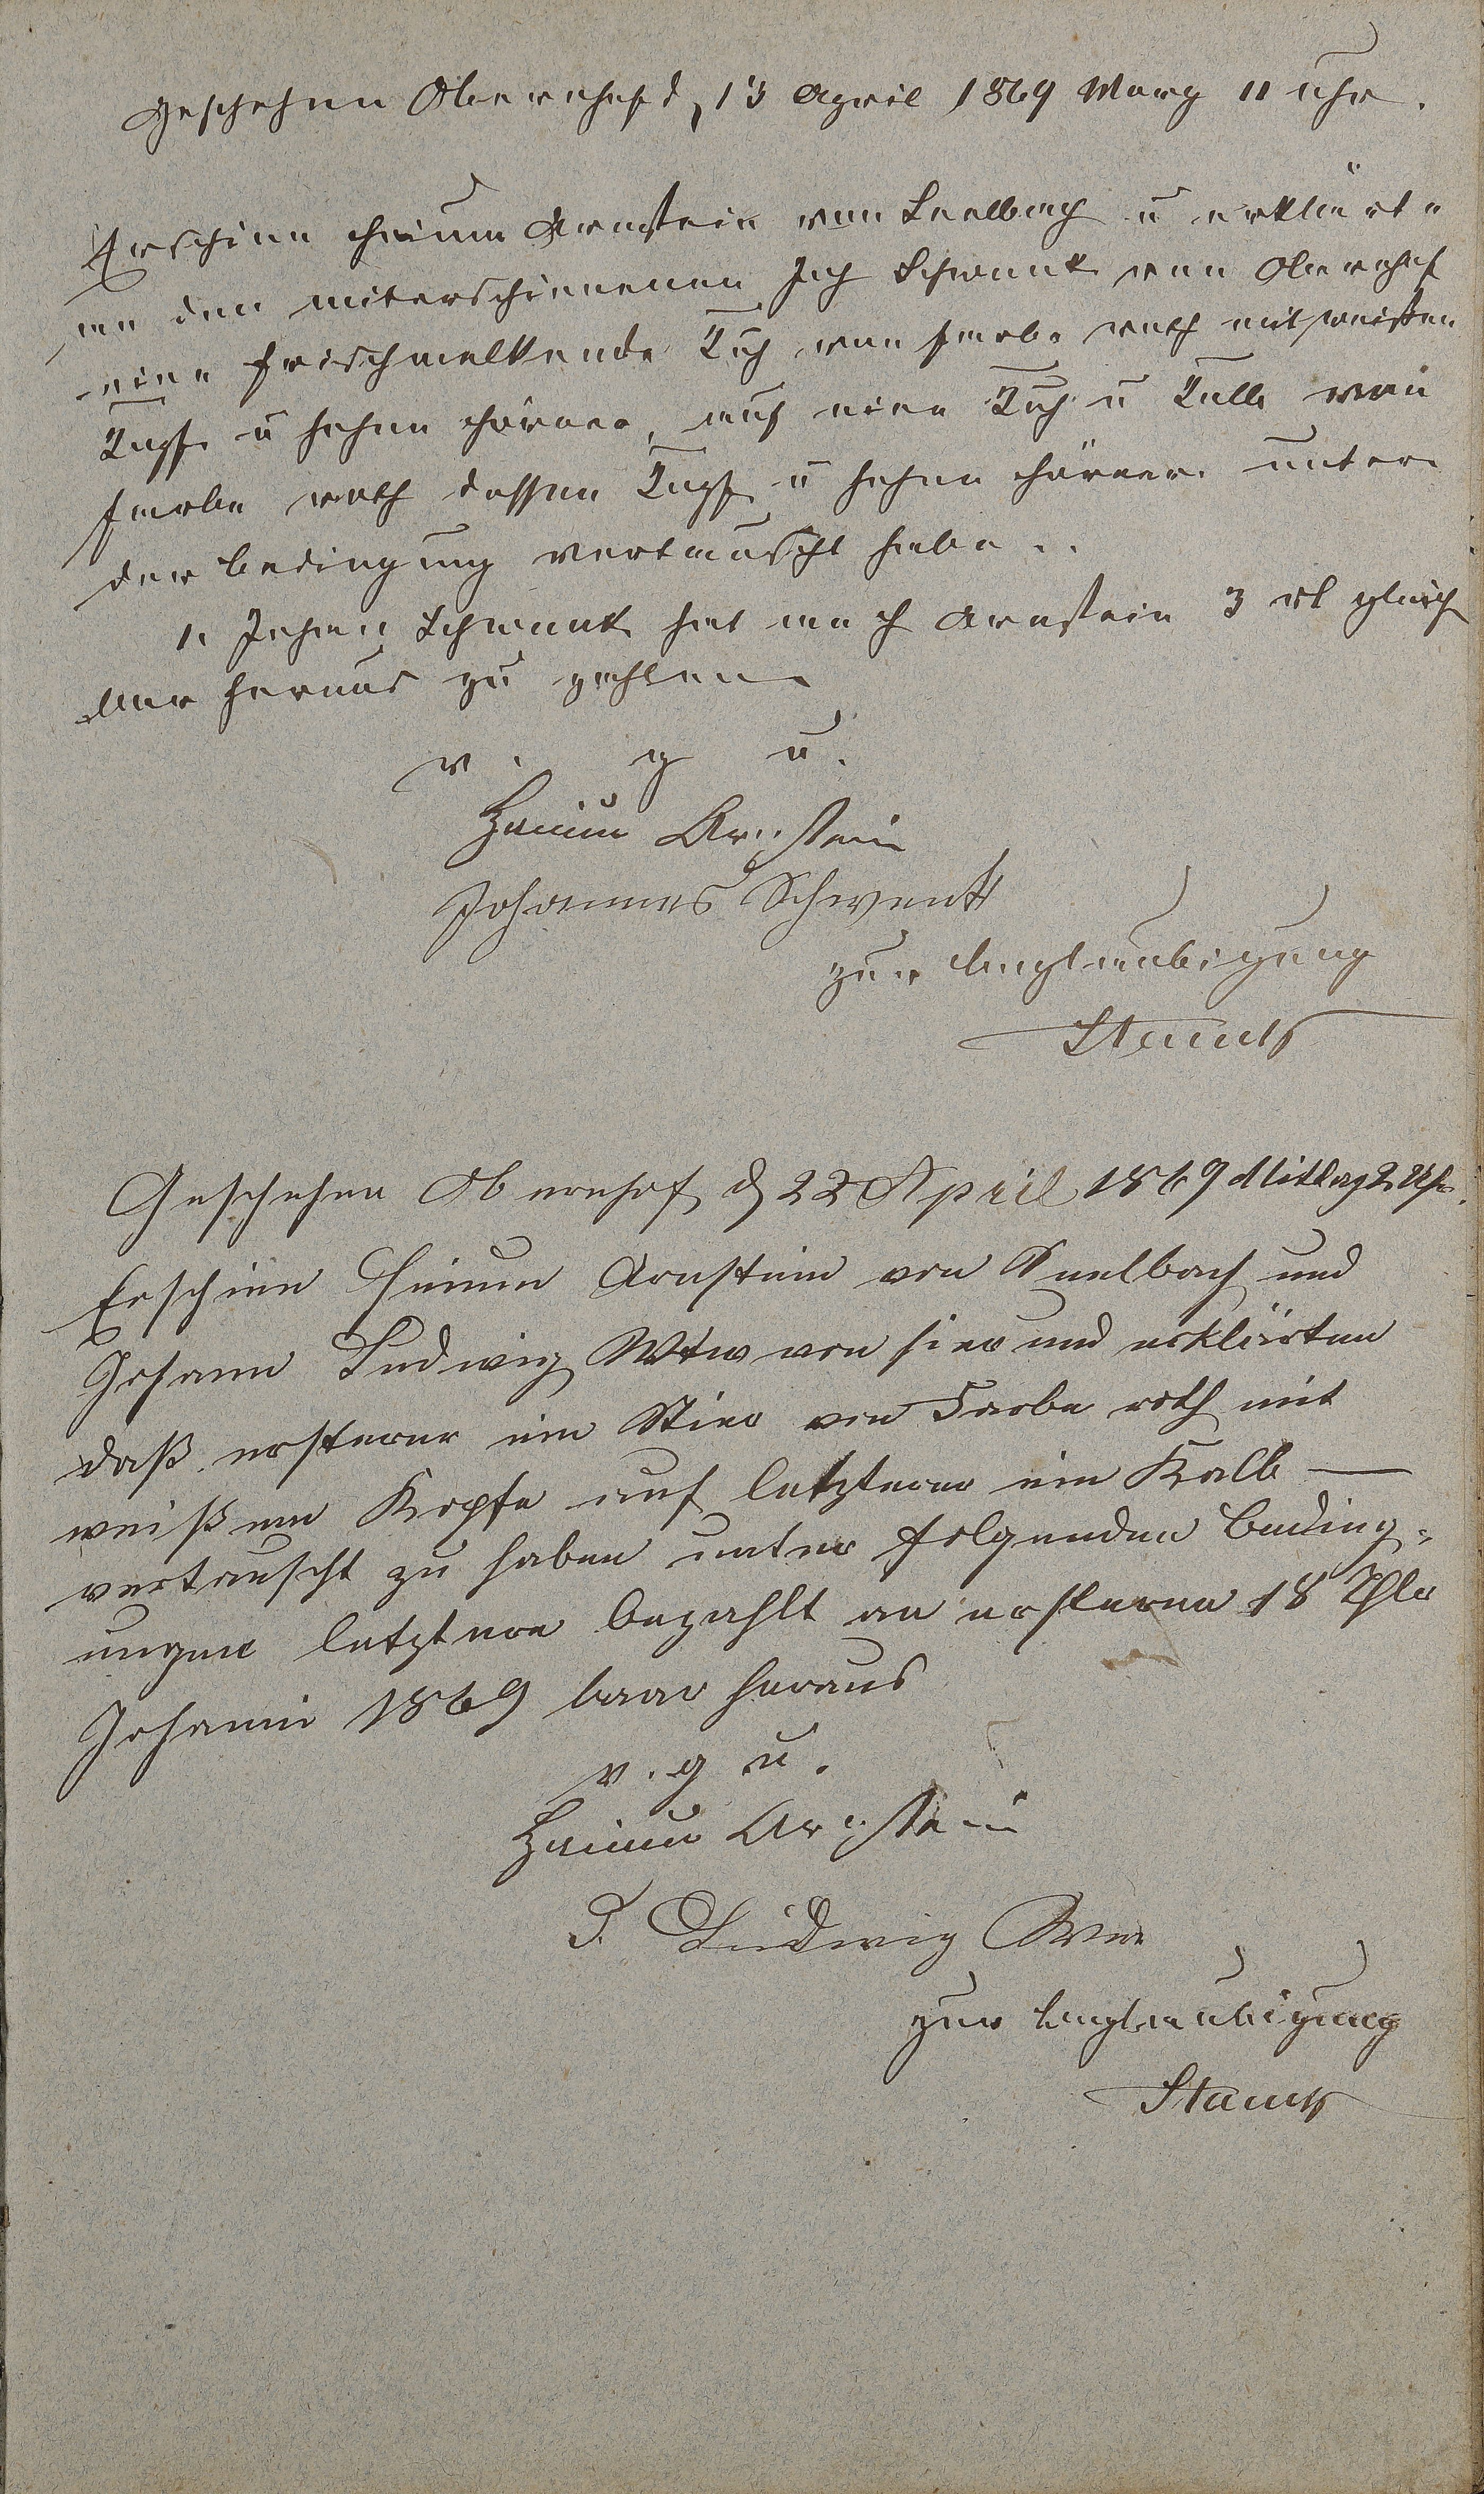 Geschehen Obernhof d, 13 April 1869 Morg 11 Uhr.
Erschien Heium Arnstein von Seelbach u erklärte
an den miterschienenen Joh Schwenk von Obernhof
eine frischmelkende Kuh von farbe roth mit weißen
Kopf u hohen Hörner, auf eine Kuh u Kalb von
farbe roth dessen Kopf u hohen Hörner unter
der bedingung vertauscht habe..
1. Johan Schwenk hat an H Arnstein 3 rl gleich
baar heraus zu zahlen
v. g u.
Haium Arnstein
Johannes Schwenk
zur beglaubigung
Geschehen Obernhof d 22 April 1869 Mittag 2 Uhr.
Erschien Heium Arnstein von Seelbach und
Johann Ludwig Wtw von hier und erklärten
daß ersterer ein Stier von Farbe roth mit
weißem Kopfe auf letzterer ein Kalb —
vertauscht zu haben unter folgenden Beding-
ungen letztere bezahlt an ersteren 18 Thlr
Johanni 1869 baar heraus
v. g u.
Haium Arnstein
J. Ludwig Wwe
zur beglaubigung